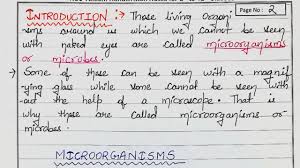 Page No: 2
INTRODUCTION :- Those living organi
sms around us which we cannot be seen
with naked eyes are called microorganisms
or microbes.
→ Some of these can be seen with a magnif
ying glass while some cannot be seen with
out the help of a microscope. That is
why these are called microorganisms or
microbes.
MICROORGANISMS